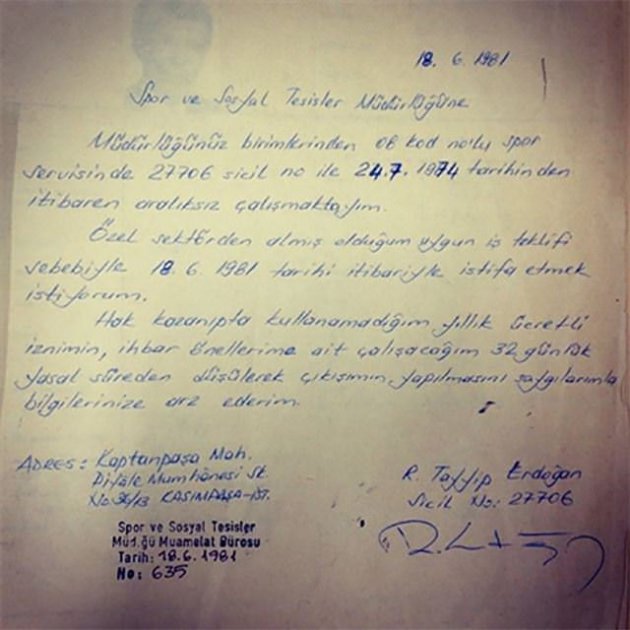 18. 6. 1981
Spor ve Sosyal Tesisler Müdürlüğüne
Müdürlüğünüz birimlerinden 08 kod no'lu spor
servisinde 27706 sicil no ile 24.7.1974 tarihinden
itibaren aralıksız çalışmaktayım.
Özel sektörden almış olduğum uygun iş teklifi
sebebiyle 18.6.1981 tarihi itibariyle istifa etmek
istiyorum.
Hak kazanıpta kullanamadığım yıllık ücretli
iznimin, ihbar önellerime ait çalışacağım 32 günlük
yasal süreden düşülerek çıkışımın yapılmasını saygılarımla
bilgilerinize arz ederim.
ADRES: Kaptanpaşa Mah.
Piyale Mumhânesi Sk.
No: KASIMPAŞA-İST.
R. Tayyip Erdoğan
Sicil No: 27706
Spor ve Sosyal Tesisler
Müd.ğü Muamelat Bürosu
Tarih: 18.6.1981
No: 635